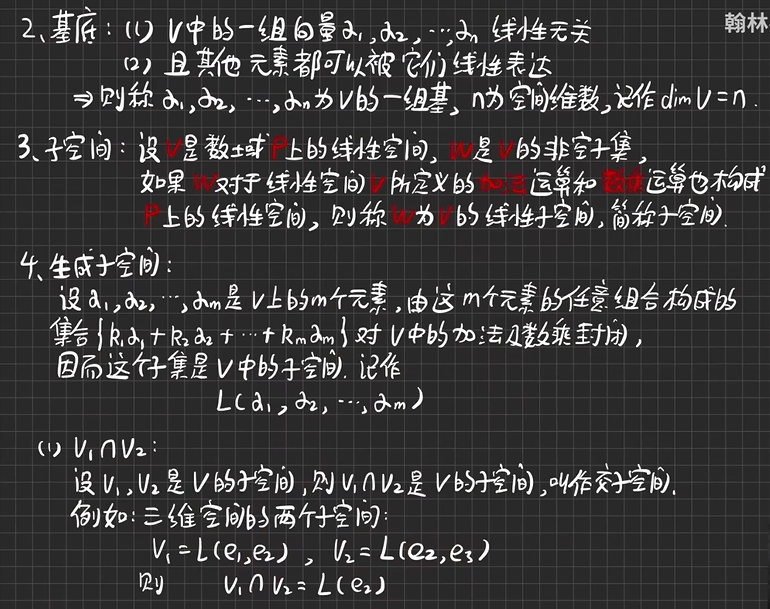 翰林
2、基底：(1) V中的一组向量α₁,α₂,…,αₙ 线性无关
(2) 且其他元素都可以被它们线性表达
⇒ 则称 α₁,α₂,…,αₙ为V的一组基，n为空间维数，记作dimV=n.
3、子空间：设V是数域P上的线性空间，W是V的非空子集，
如果W对于线性空间V所定义的加法运算和数乘运算也构成
P上的线性空间，则称W为V的线性子空间，简称子空间.
4、生成子空间：
设α₁,α₂,…,αₘ是V上的m个元素，由这m个元素的任意组合构成的
集合{k₁α₁+k₂α₂+…+kₘαₘ}对V中的加法及数乘封闭，
因而这个子集是V中的子空间. 记作
L(α₁,α₂,…,αₘ)
(1) V₁∩V₂：
设V₁,V₂是V的子空间，则V₁∩V₂是V的子空间，叫作交子空间.
例如：三维空间的两个子空间：
V₁=L(e₁,e₂)，V₂=L(e₂,e₃)
则 V₁∩V₂=L(e₂)